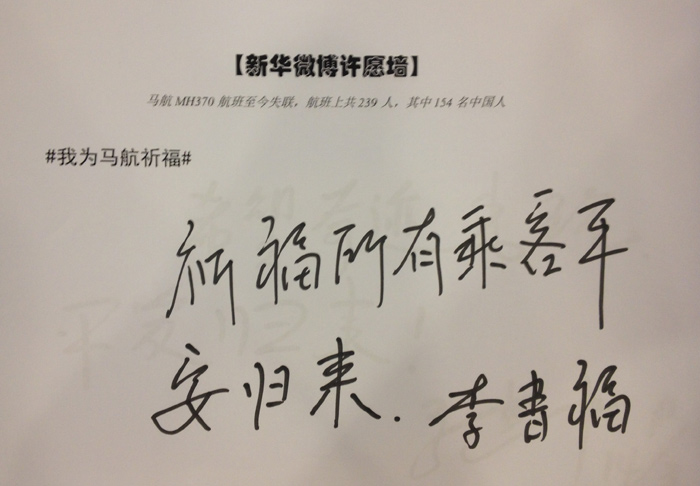 【新华微博许愿墙】
马航 MH370 航班至今失联，航班上共 239 人，其中 154 名中国人
#我为马航祈福#
祈福所有乘客平
安归来. 李书福